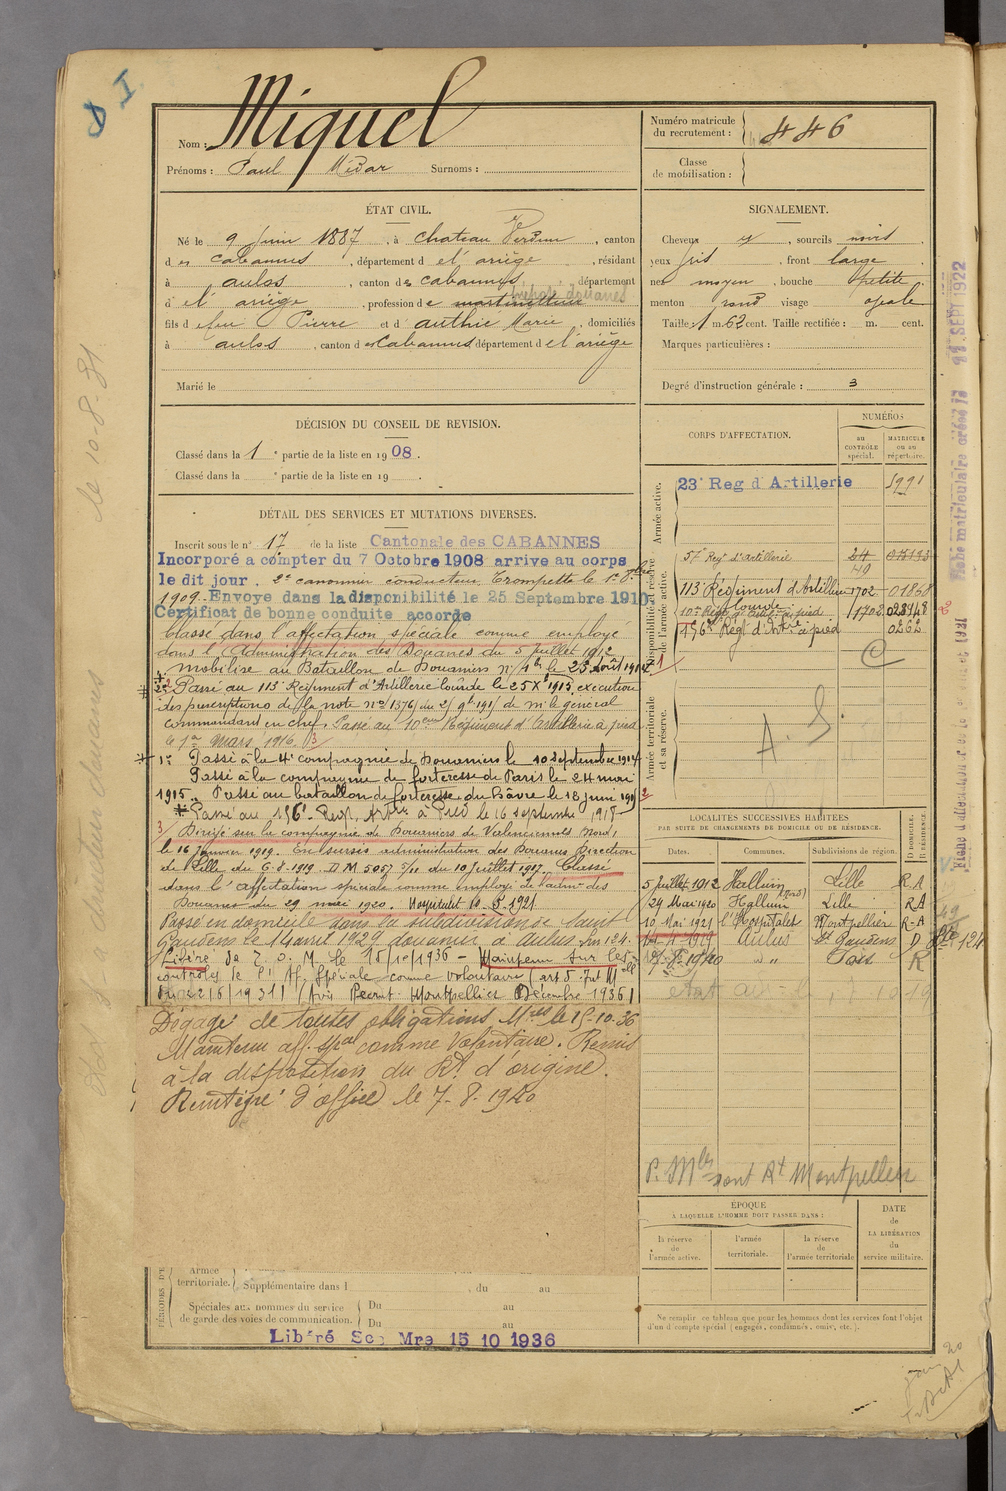 Nom : Miquel
Prénoms : Paul Médar Surnoms :
Numéro matricule du recrutement : 446
Classe de mobilisation :
ÉTAT CIVIL.
Né le 9 Juin 1887, à Chateau Verdun, canton
d es Cabannes, département d e l'ariège, résidant
à aulos, canton des Cabannes, département
d e l'ariège, profession de préposé douanes
fils d e feu Pierre et d authié Marie, domiciliés
à aulos, canton d es Cabannes département d e l'ariège
Marié le
SIGNALEMENT.
Cheveux n, sourcils noirs,
yeux gris, front large
nez moyen, bouche petite
menton rond visage ovale
Taille : 1 m. 62 cent. Taille rectifiée : m. cent.
Marques particulières :
Degré d'instruction générale : 3
DÉCISION DU CONSEIL DE REVISION.
Classé dans la 1e partie de la liste en 1908.
Classé dans la e partie de la liste en 19 .
DÉTAIL DES SERVICES ET MUTATIONS DIVERSES.
Inscrit sous le n° 17 de la liste Cantonale des CABANNES
Incorporé à compter du 7 Octobre 1908 arrivé au corps
le dit jour. 2e canonnier conducteur. Trompette le 1er 8bre
1909. Envoyé dans la disponibilité le 25 Septembre 1910
Certificat de bonne conduite accordé
Classé dans l'affectation spéciale comme employé
dans l'Administration des Douanes du 5 juillet 1912
Mobilisé au Bataillon de Douaniers n° le 23 août 1914
2° Passé au 113e Régiment d'Artillerie lourde le 25 Xbre 1915, exécution
des prescriptions de la note n° 1376 du de M. le général
commandant en chef. Passé au 10eme Régiment d'Artillerie à pied
le 1er Mars 1916.
1° Passé à la 4e compagnie de Douaniers le 10 septembre 1914
Passé à la compagnie de forteresse de Paris le 24 mai
1915. Passé au bataillon de forteresse du Hâvre le 18 juin 1915
Passé au 156e Régt Artie à Pied le 16 septembre 1918
3 Dirigé sur la compagnie de Douaniers de Valenciennes (Nord),
le 16 janvier 1919. En sursis administration des Douanes Direction
de Lille du 6-8-1919. D M 5057 5/11 du 10 juillet 1917. Classé
dans l'affectation spéciale comme employé de l'admon des
Douanes du 29 mai 1920. Hospitalet 10-5-1921
Passé en domicile dans la subdivision de Saint
Gaudens le 14 avril 1929 douanier à Aulus
Libéré de T. O. M. le 15/10/1936 - Maintenu sur les
contrôles de l'Af. Spéciale comme volontaire (art 5 Inst Mlle
du 22/6/1931) (Avis Recrut. Montpellier Décembre 1936)
Dégagé de toutes obligations Mres le 15-10-36
Maintenu aff. spal comme Volontaire. Remis
à la disposition du Rt d'origine.
Réintégré d'office le 7-8-1940
CORPS D'AFFECTATION.
NUMÉROS
au CONTRÔLE spécial.
MATRICULE ou au répertoire.
Armée active.
23e Reg d'Artillerie 5991
Disponibilité et réserve de l'armée active.
57e Regt d'artillerie 24 49
113e Régiment d'Artillerie lourde 1702 01868
10me Régt d'Artie à pied 1702 028948
156e Régt d'Artie à pied 0262
Armée territoriale et sa réserve.
A. S.
LOCALITÉS SUCCESSIVES HABITÉES
PAR SUITE DE CHANGEMENTS DE DOMICILE OU DE RÉSIDENCE.
Dates. Communes. Subdivisions de région. D DOMICILE. R RÉSIDENCE
5 juillet 1912 Halluin Lille R.A
29 Mai 1920 Halluin (Nord) Lille RA
10 Mai 1921 l'Hospitalet Montpellier R-A
14-4-1929 Aulus St Gaudens D
7-8-1940 " " Foix R
P. Mles sont Rt Montpellier
EPOQUE
A LAQUELLE L'HOMME DOIT PASSER DANS :
la réserve de l'armée active.
l'armée territoriale.
la réserve de l'armée territoriale
DATE de LA LIBÉRATION du service militaire.
Ne remplir ce tableau que pour les hommes dont les services font l'objet
d'un d'compte spécial (engagés, condamnés, omis, etc.).
Armée territoriale. Supplémentaire dans l , du au
Spéciales aux hommes du service de garde des voies de communication. Du au
Du au
Libéré Sce Mre 15 10 1936
le 10-8-31
Fiche matriculaire créée le SEPT 1922